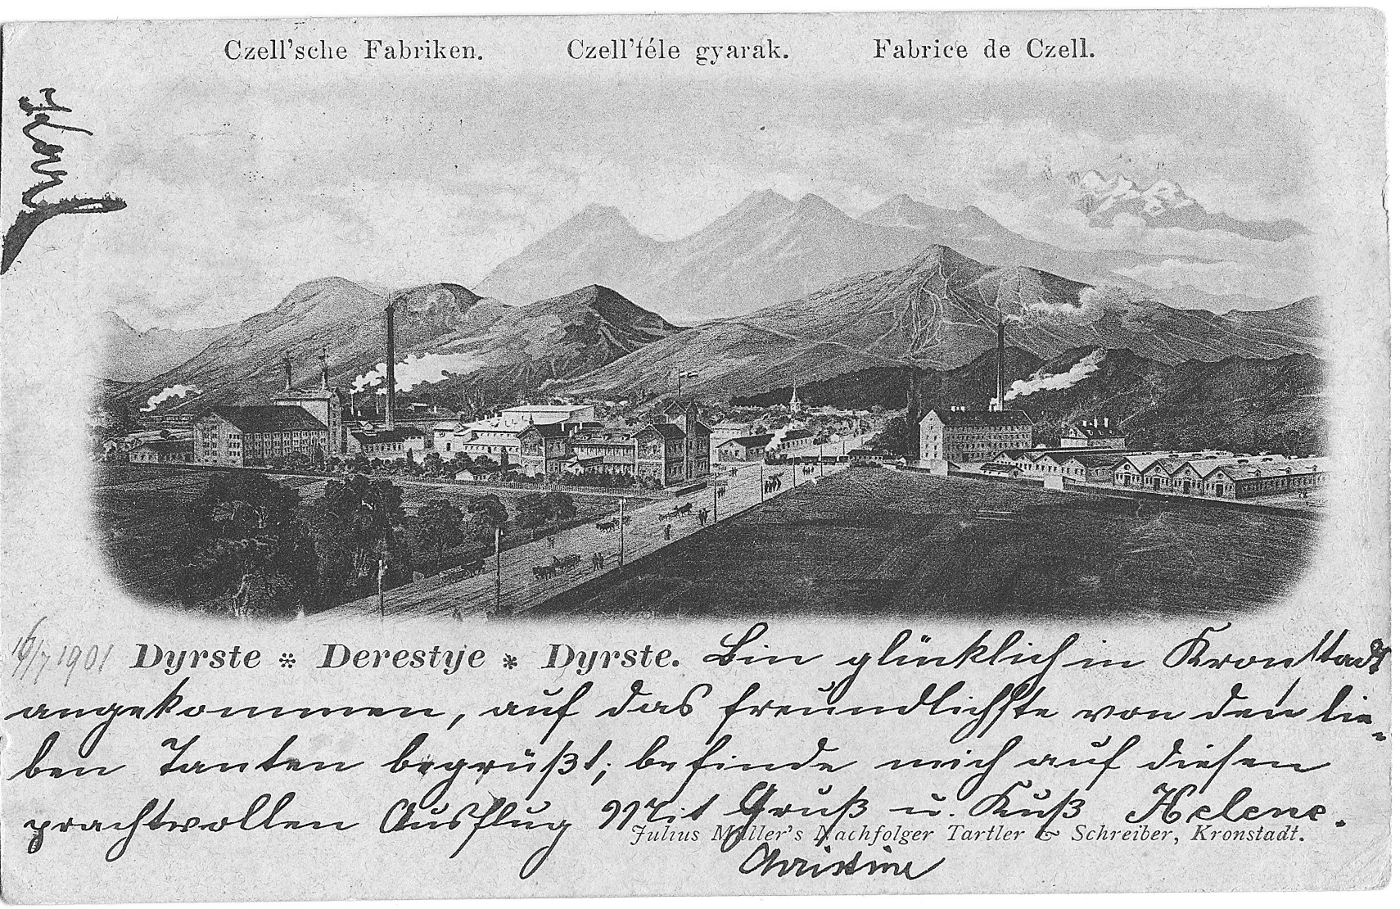 Czell'sche Fabriken. Czell'féle gyarak. Fabrice de Czell.
16/7 1901 Dyrste * Derestye * Dyrste. Bin glücklich in Kronstadt
angekommen, auf das freundlichste von den lie-
ben Tanten begrüßt; befinde mich auf diesen
prachtvollen Ausflug Mit Gruß u. Kuß Helene.
Julius Müller's Nachfolger Tartler & Schreiber, Kronstadt.
Christine